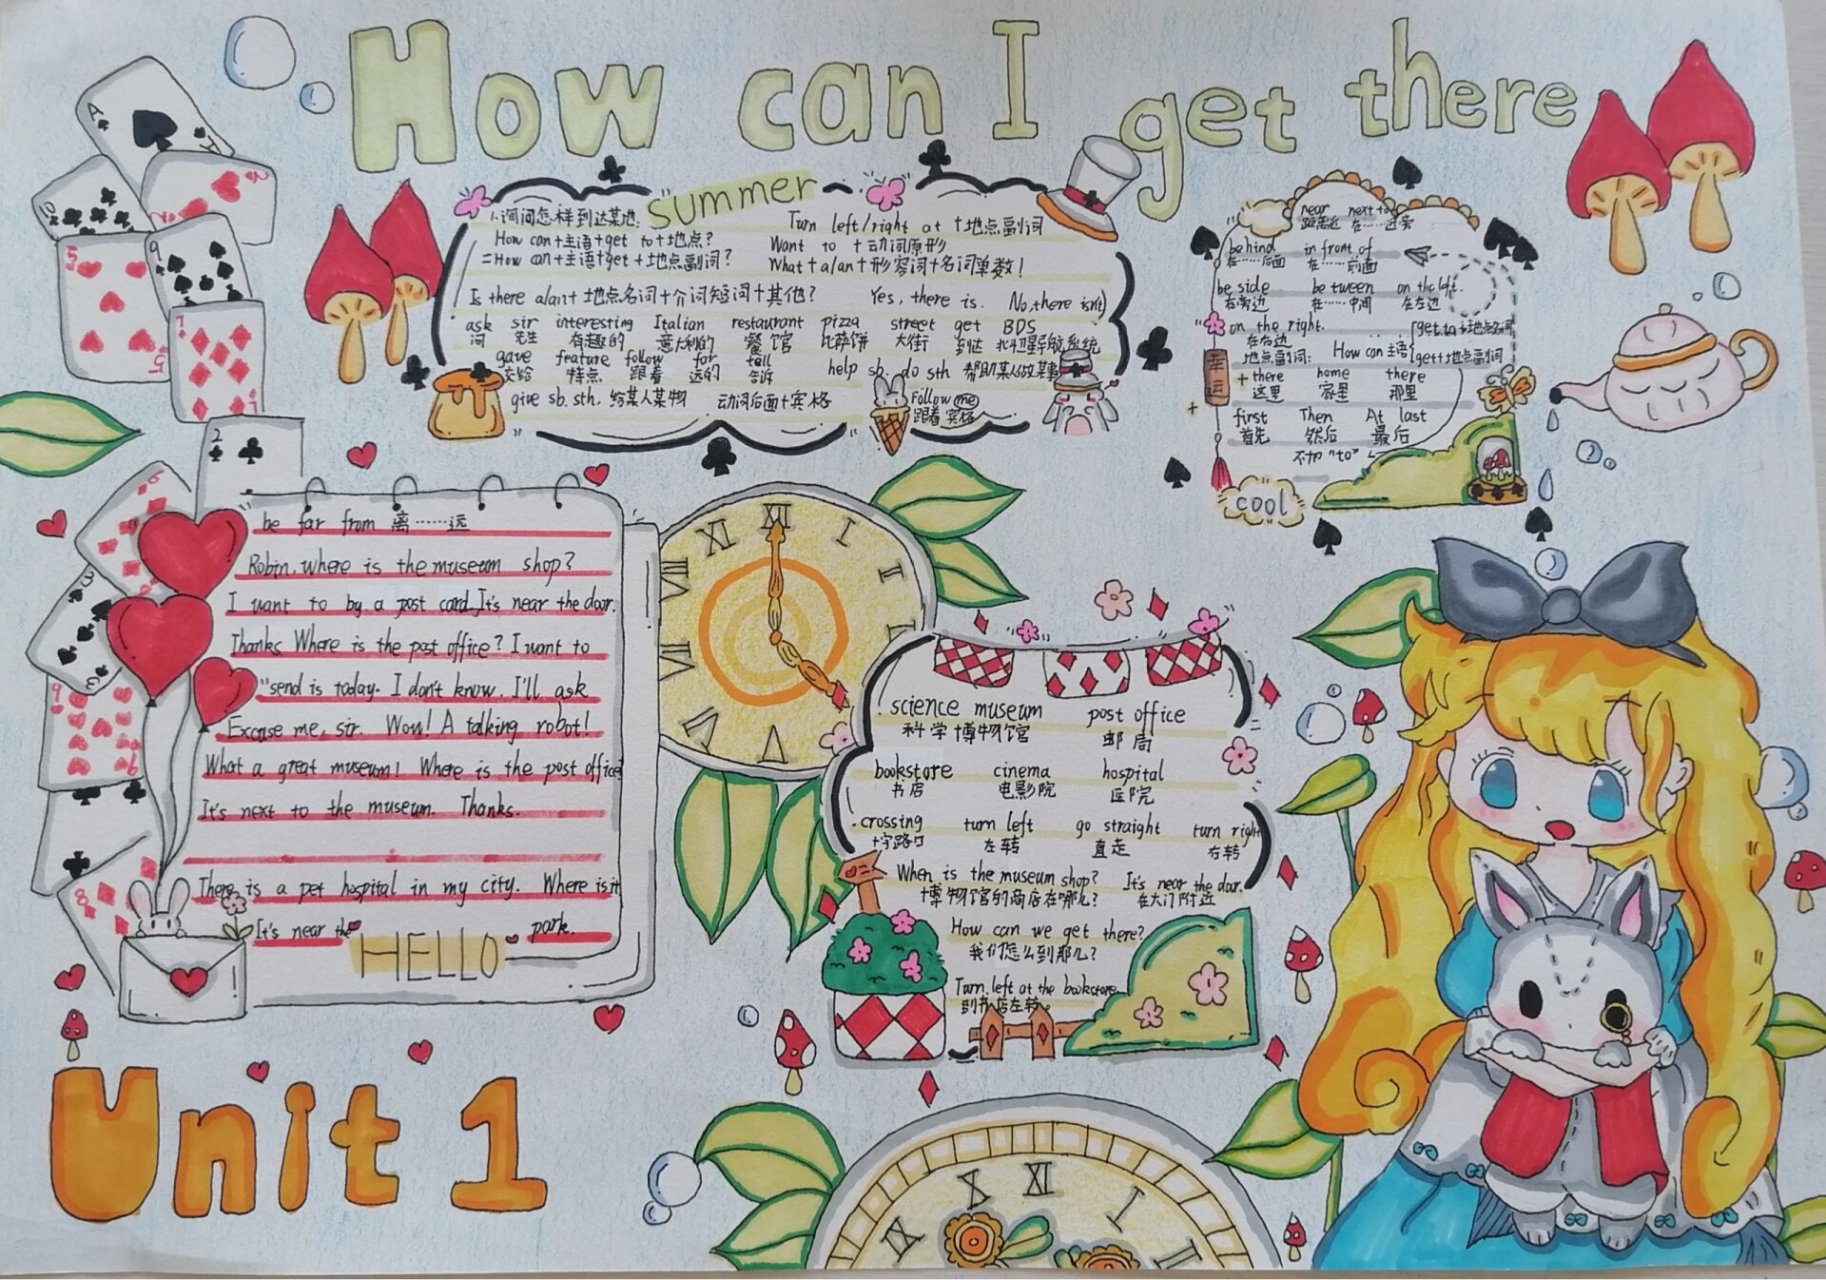 How can I get there
summer
1.询问怎样到达某地:
How can+主语+get to+地点?
=How can+主语+get+地点副词?
Turn left/right at +地点副词
Want to +动词原形
What+a/an+形容词+名词单数!
Is there a/an+地点名词+介词短词+其他? Yes, there is. No, there isn't
ask sir interesting Italian restaurant pizza street get BDS
问 先生 有趣的 意大利的 餐馆 比萨饼 大街 到达 北斗卫星导航系统
gave feature follow far tell
交给 特点 跟着 远的 告诉
help sb. do sth 帮助某人做某事
give sb. sth. 给某人某物 动词后面+宾格
Follow me
跟着 宾格
near next to
距离近 在……近旁
behind in front of
在……后面 在……前面
be side be tween on the left.
在旁边 在……中间 在左边
on the right.
在右边
地点副词: How can 主语 get to+地点名词
get+地点副词
幸运
+there home there
这里 家里 那里
first Then At last
首先 然后 最后
不加 "to"
cool
be far from 离……远
Robin. where is the museum shop?
I want to by a post card. It's near the door.
Thanks. Where is the post office? I want to
send is today. I don't know. I'll ask
Excuse me, sir. Wow! A talking robot!
What a great museum! Where is the post office
It's next to the museum. Thanks.
There is a pet hospital in my city. Where is it
It's near the park.
HELLO
science museum post office
科学博物馆 邮局
bookstore cinema hospital
书店 电影院 医院
crossing turn left go straight turn right
十字路口 左转 直走 右转
When is the museum shop? It's near the dor.
博物馆的商店在哪儿? 在大门附近
How can we get there?
我们怎么到那儿?
Turn left at the bookstore
到书店左转。
Unit 1
XI XII I II
X XI I II